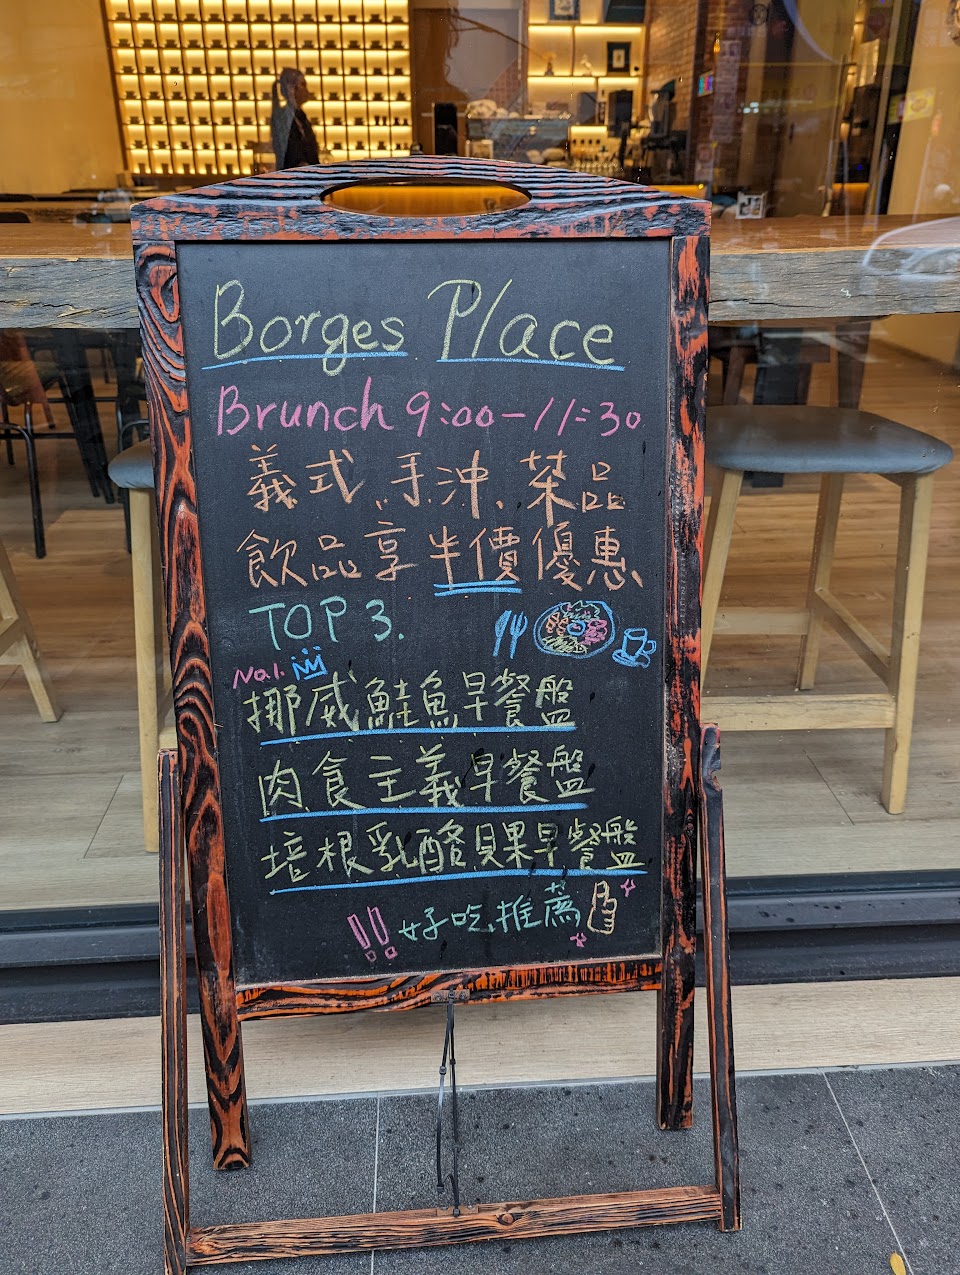 Borges Place
Brunch 9:00-11:30
義式、手沖、茶品
飲品享半價優惠
TOP 3.
No1.
挪威鮭魚早餐盤
肉食主義早餐盤
培根乳酪貝果早餐盤
!! 好吃、推薦